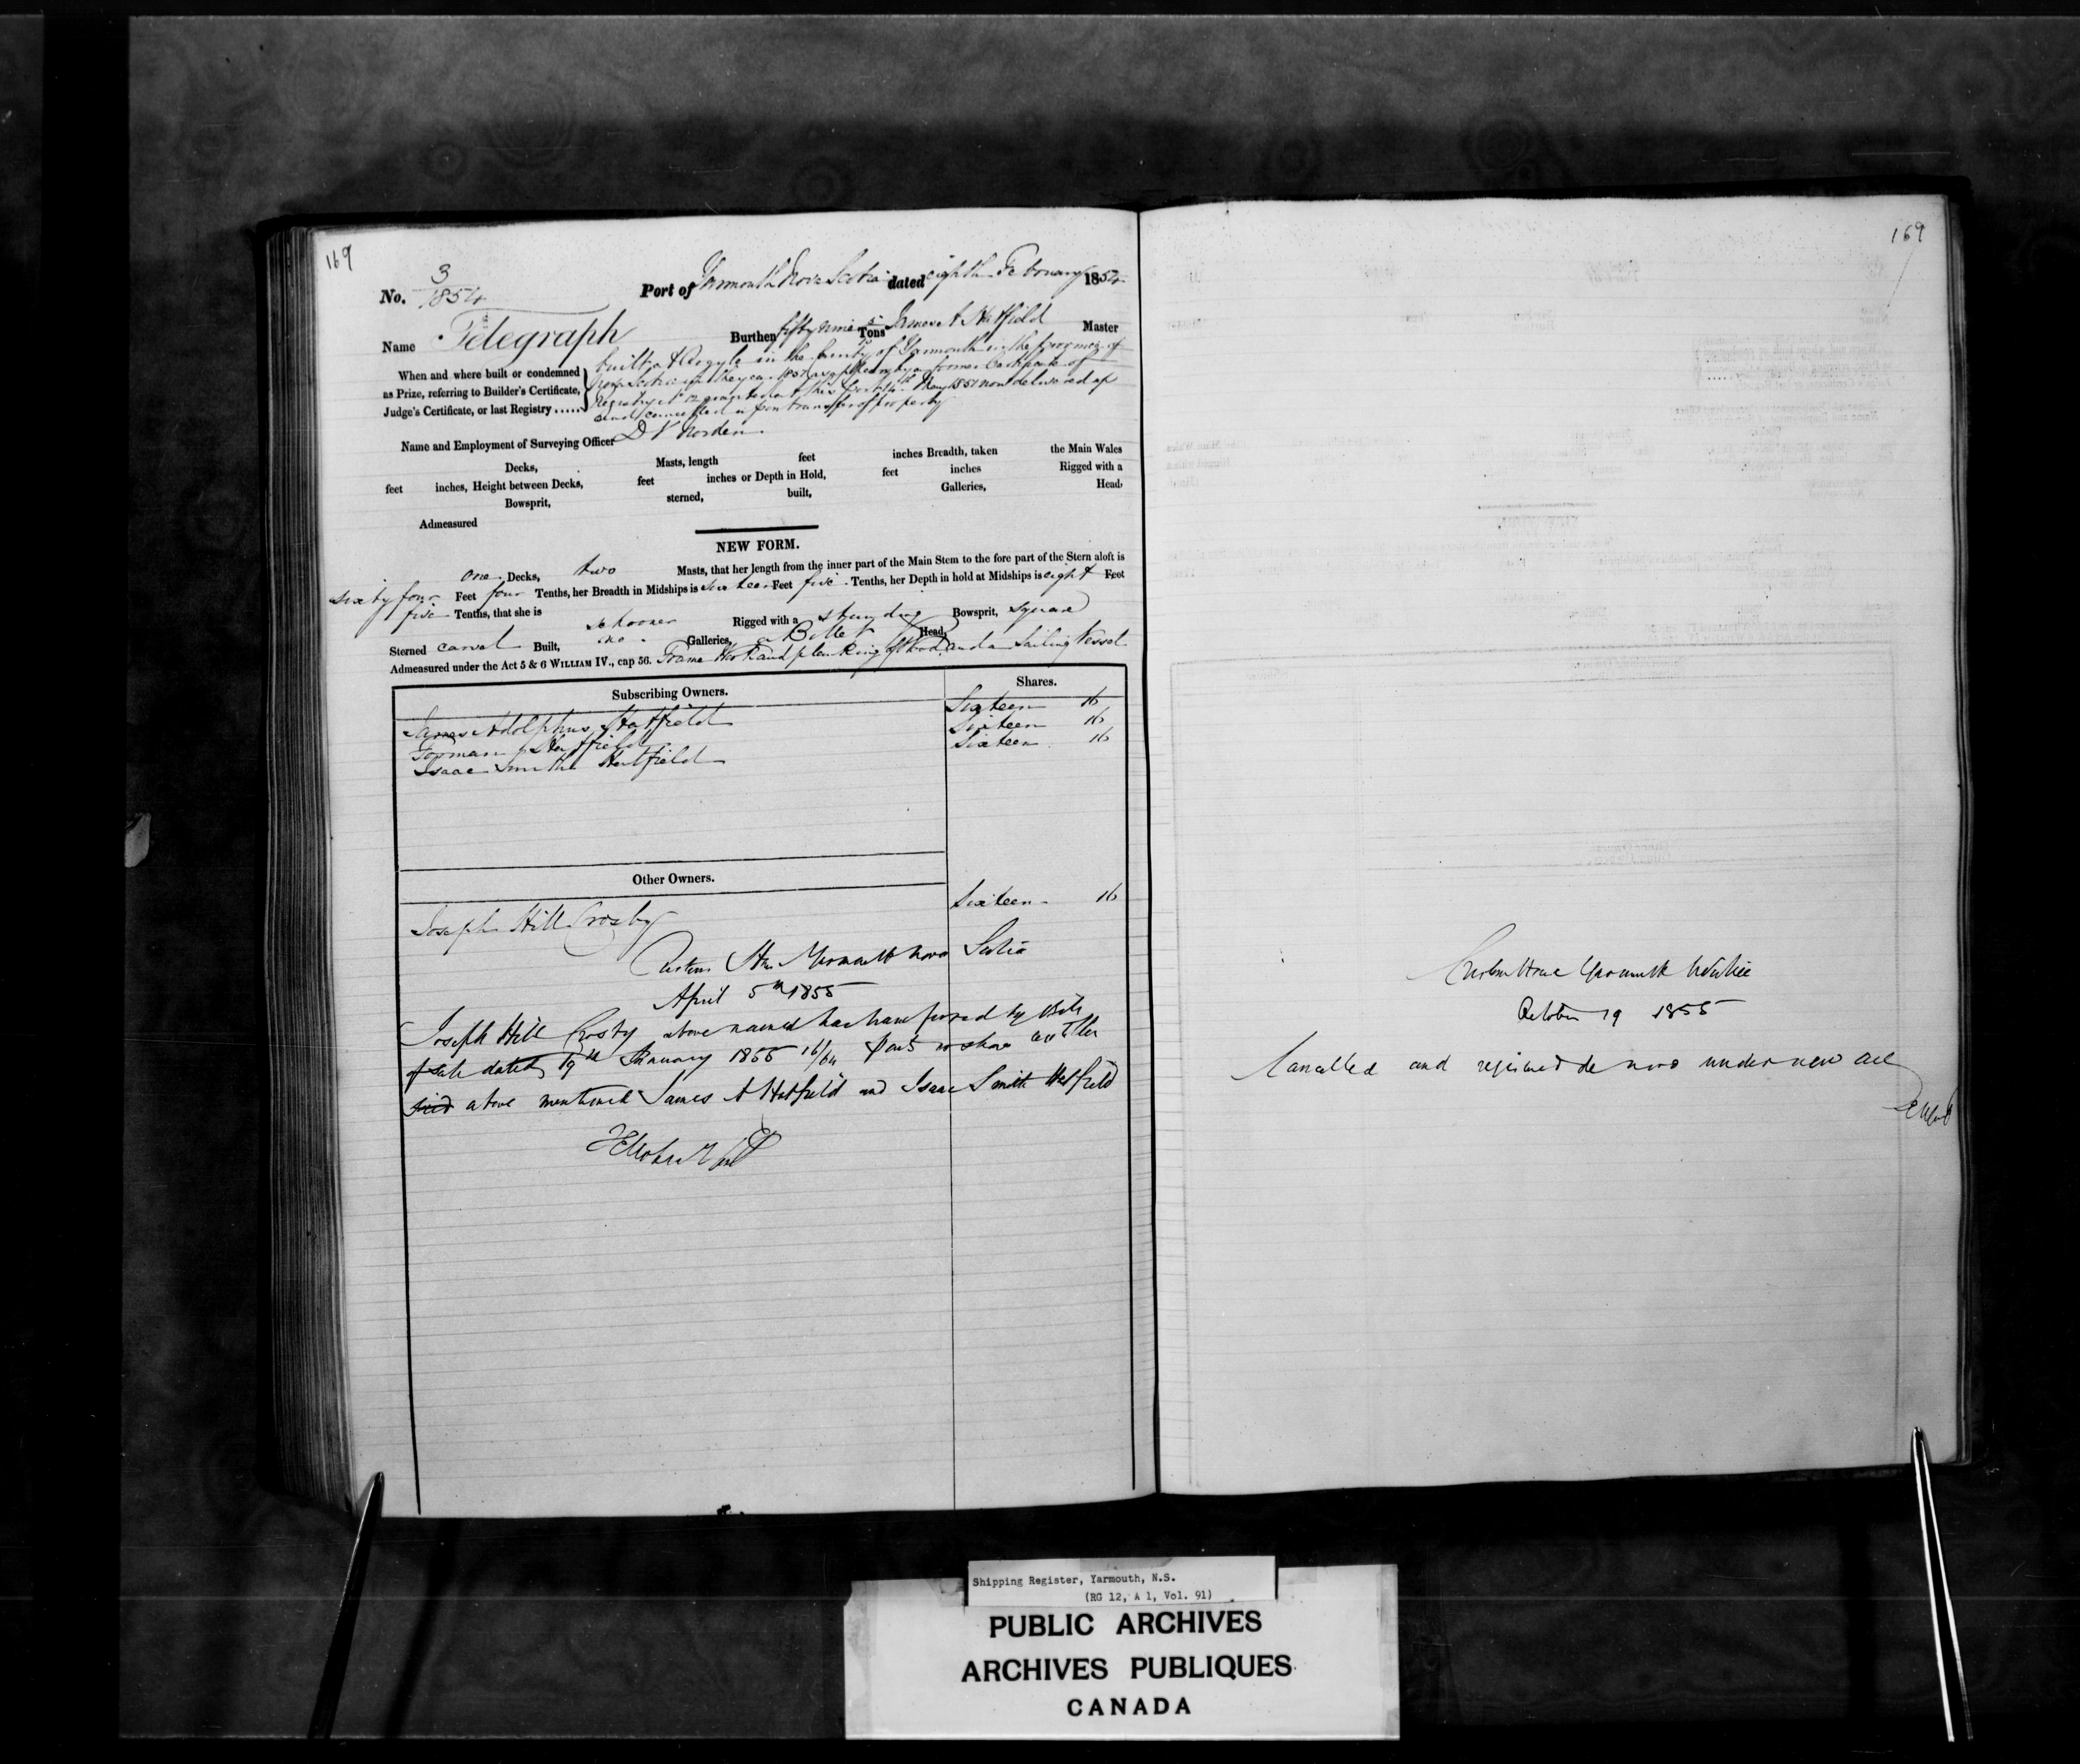 169
No. 3/1854 Port of Yarmouth Nova Scotia dated eighth February 1854
Name Telegraph Burthen fifty nine Tons James A Hatfield Master
When and where built or condemned
as Prize, referring to Builder's Certificate,
Judge's Certificate, or last Registry ......
built at Argyle in the County of Yarmouth in the province of
Nova Scotia in the year as appears by a former Certificate of
Registry No 12 granted at this Port May 1851 now delivered up
and cancelled upon transfer of property
Name and Employment of Surveying Officer D V Norden
Decks, Masts, length feet inches Breadth, taken the Main Wales
feet inches, Height between Decks, feet inches or Depth in Hold, feet inches Rigged with a
Bowsprit, sterned, built, Galleries, Head,
Admeasured
NEW FORM.
one Decks, two Masts, that her length from the inner part of the Main Stem to the fore part of the Stern aloft is
sixty four Feet four Tenths, her Breadth in Midships is sixteen Feet five Tenths, her Depth in hold at Midships is eight Feet
five Tenths, that she is schooner Rigged with a standing Bowsprit, square
Sterned carvel Built, no Galleries, a Billet Head,
Admeasured under the Act 5 & 6 WILLIAM IV., cap 56. Frame Work and planking of Wood and a Sailing Vessel
Subscribing Owners. Shares.
James Adolphus Hatfield Sixteen 16
Forman Hatfield Sixteen 16
Isaac Smith Hatfield Sixteen 16
Other Owners.
Joseph Hill Crosby Sixteen 16
Custom Hse Yarmouth Nova Scotia
April 5th 1855
Joseph Hill Crosby above named has transferred by Bill
of Sale dated 19th January 1855 16/64 parts or shares to the
said above mentioned James A Hatfield and Isaac Smith Hatfield
169
Custom House Yarmouth N Scotia
October 19 1855
Cancelled and registered de novo under new act
Shipping Register, Yarmouth, N.S.
(RG 12, A 1, Vol. 91)
PUBLIC ARCHIVES
ARCHIVES PUBLIQUES
CANADA